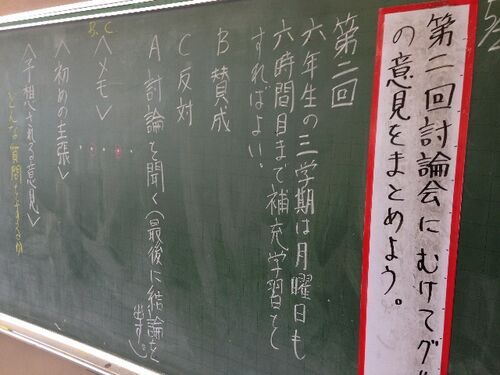 第二回討論会にむけてグル
の意見をまとめよう。
第二回
六年生の三学期は月曜日も
六時間目まで補充学習を
すればよい。
B 賛成
C 反対
A 討論を聞く(最後に結論を
出す。)
<メモ>
<初めの主張>
<予想される意見>
どんな質問を